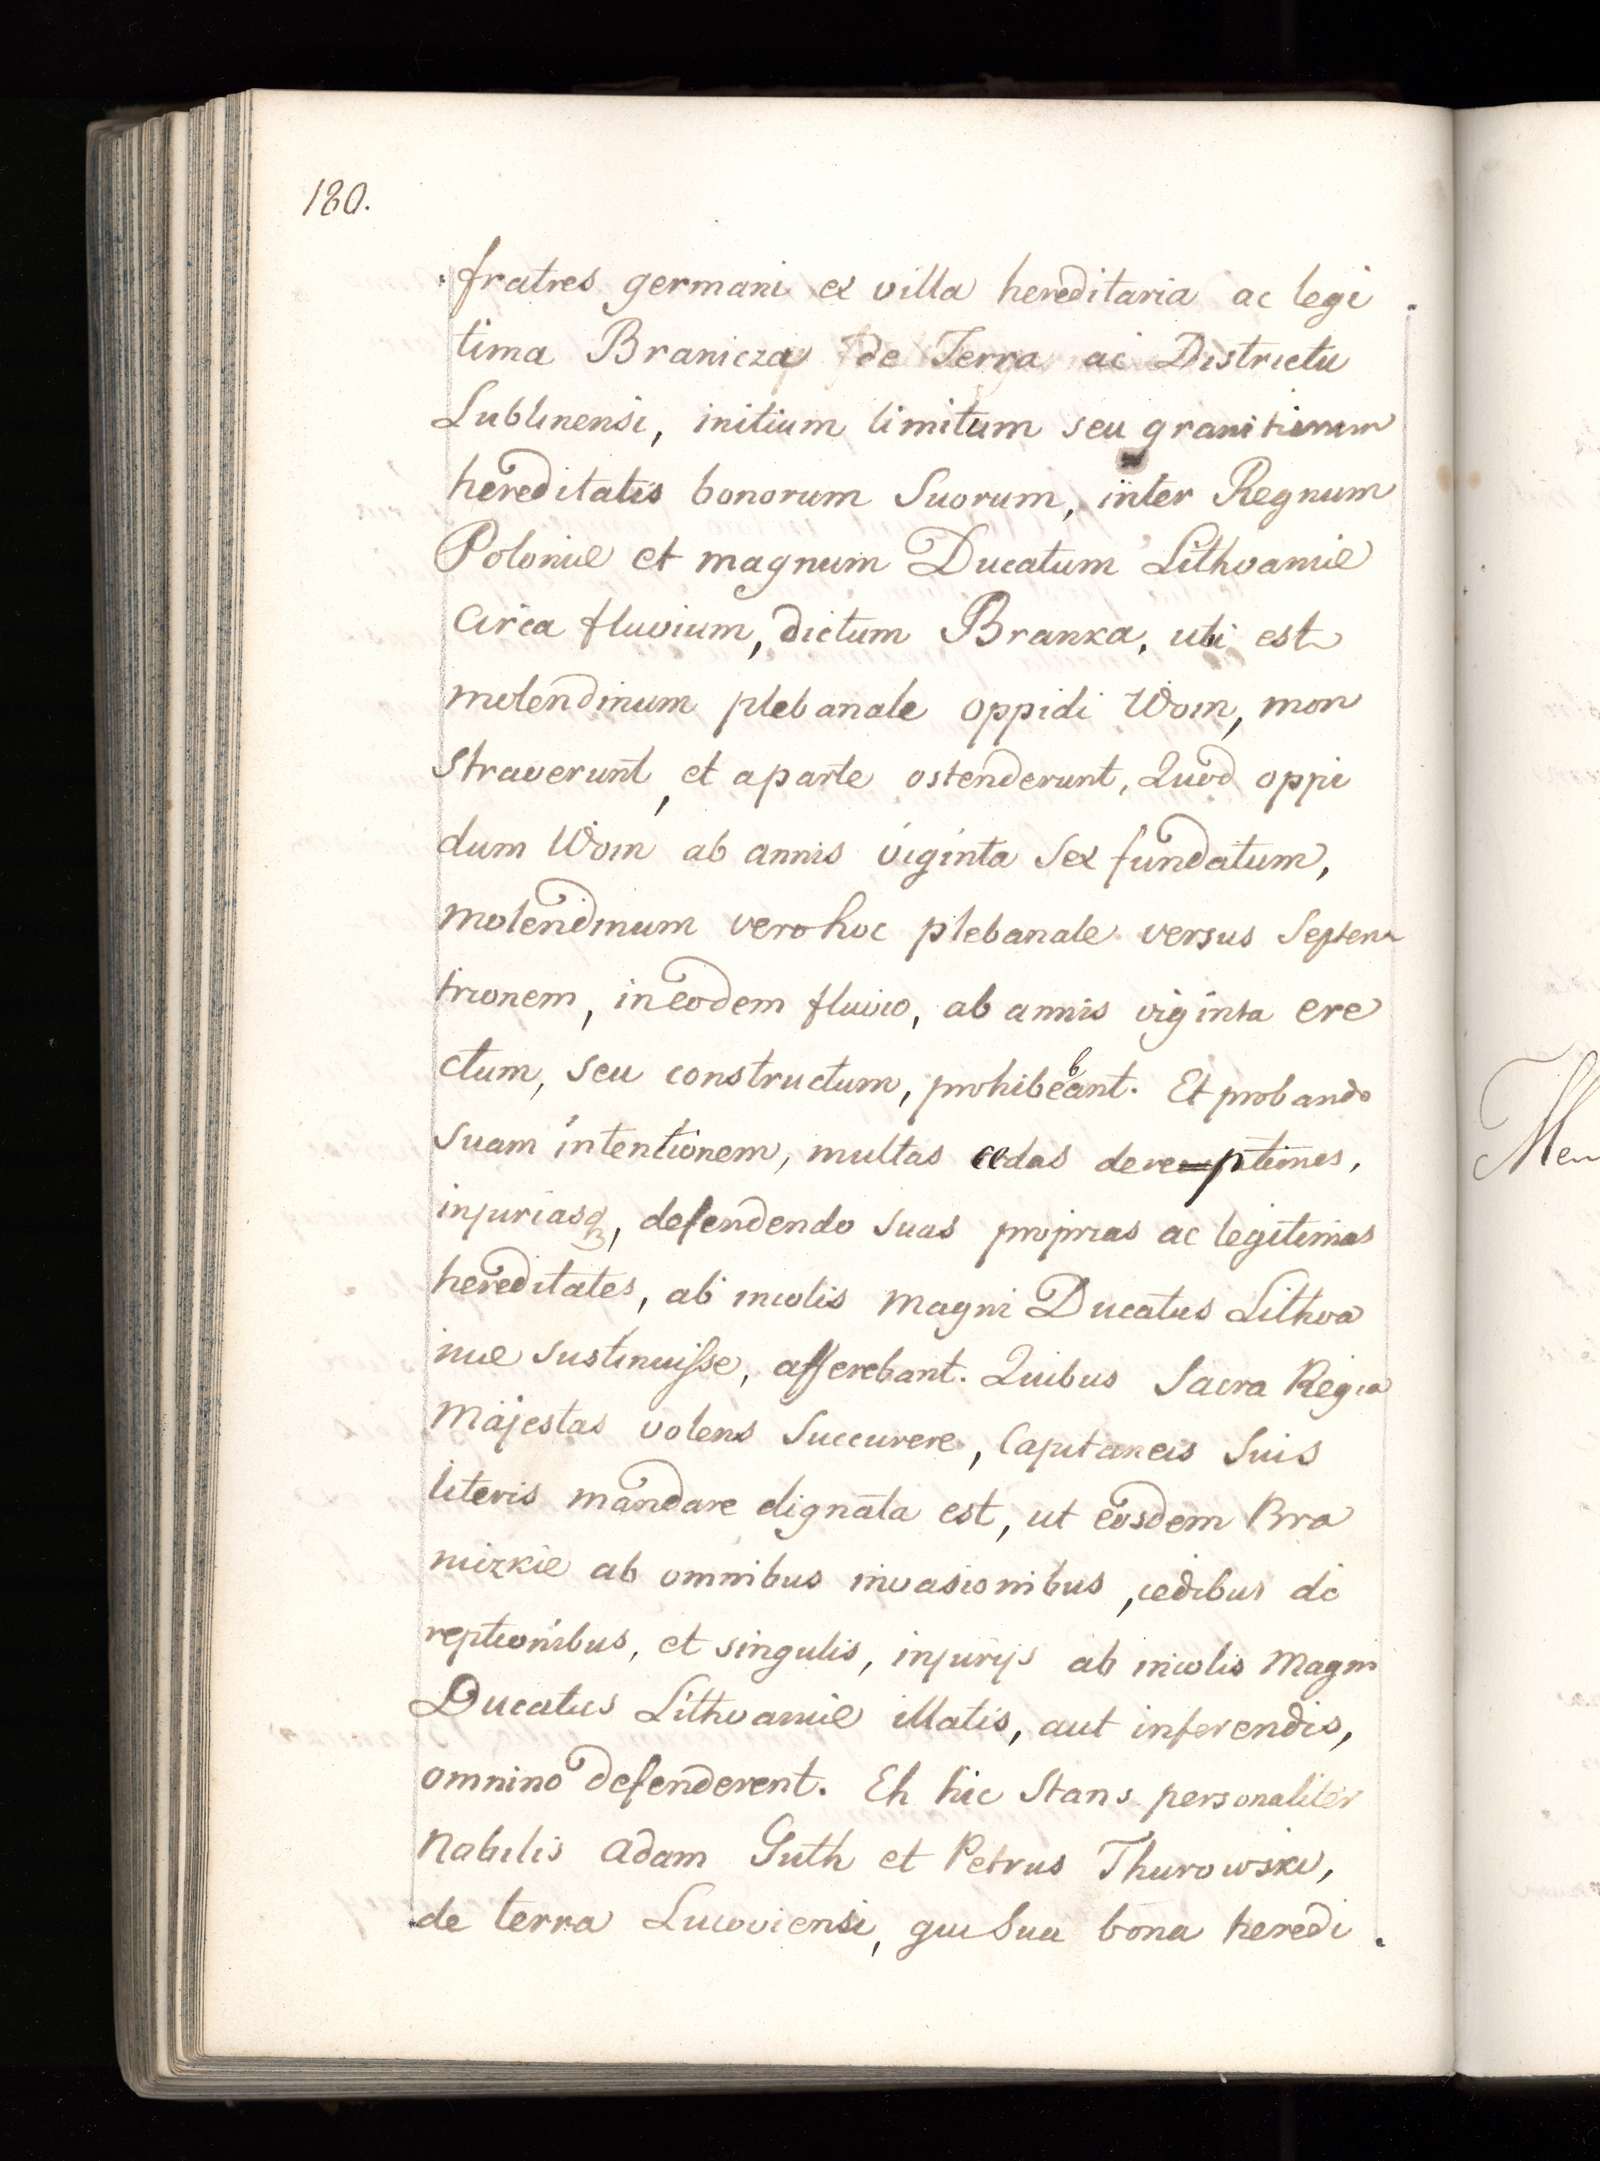 180.
fratres germani ex villa hereditaria ac legi
tima Branicza de Terra ac Districtu
Lublinensi, initium limitum seu granitierum
hereditatis bonorum Suorum, inter Regnum
Poloniæ et magnum Ducatum Lithvaniæ
circa fluvium, dictum Branka, ubi est
molendinum plebanale oppidi Woin, mon
straverunt, et aparte ostenderunt, Quod oppi
dum Woin ab annis viginta Sex fundatum,
molendinum vero hoc plebanale versus Septen
trionem, in eodem fluvio, ab annis viginta ere
ctum, seu constructum, prohibebant. Et probando
Suam intentionem, multas cedas
injuriasq, defendendo Suas proprias ac legitimas
hereditates, ab incolis magni Ducatus Lithva
niæ sustinuisse, asserebant. Quibus Sacra Regia
Majestas volens Succurere, Capitaneis Suis
literis mandare dignata est, ut eosdem Bra
nizkie ab omnibus invasionibus, cedibus di
reptionibus, et singulis, injurijs ab incolis Magni
Ducatus Lithvaniæ illatis, aut inferendis,
omnino defenderent. Eh hic Stans personaliter
Nobilis Adam Guth et Petrus Thurowski,
de terra Lucoviensi, qui Sua bona heredi
Men